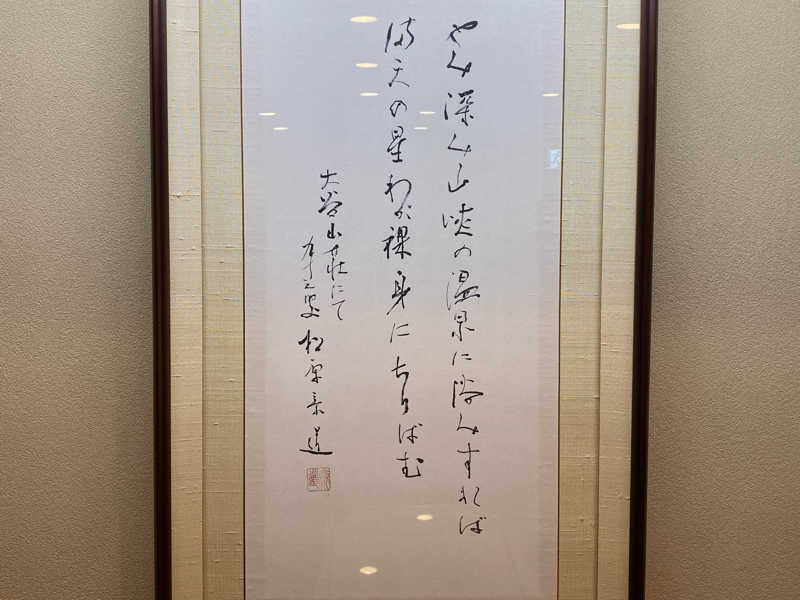 やみ深み山峡の温泉に浴みすれば
満天の星わが裸身にちりばむ
大谷山荘にて
松原泰道